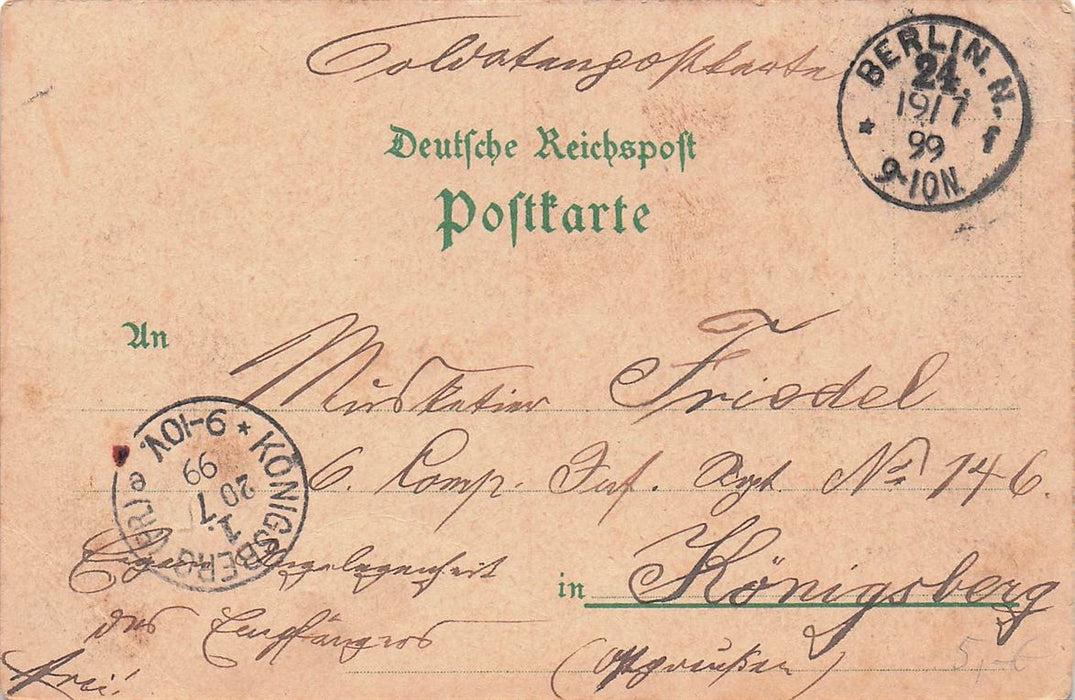 Soldatenpostkarte
BERLIN. N. f
24.
19/7
99
9-10N.
Deutsche Reichspost
Postkarte
An
Musketier Friedel
6. Comp. Inf. Rgt. No 146.
KÖNIGSBERG (PR.) e
1.
20 7
99
9-10V.
Eigene Angelegenheit
des Empfängers
frei!
in Königsberg
(Ostpreußen)
5,- €